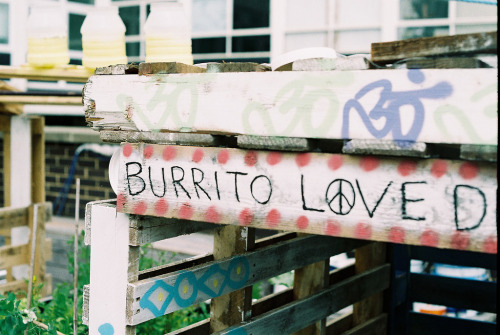 BURRITO LOVE D